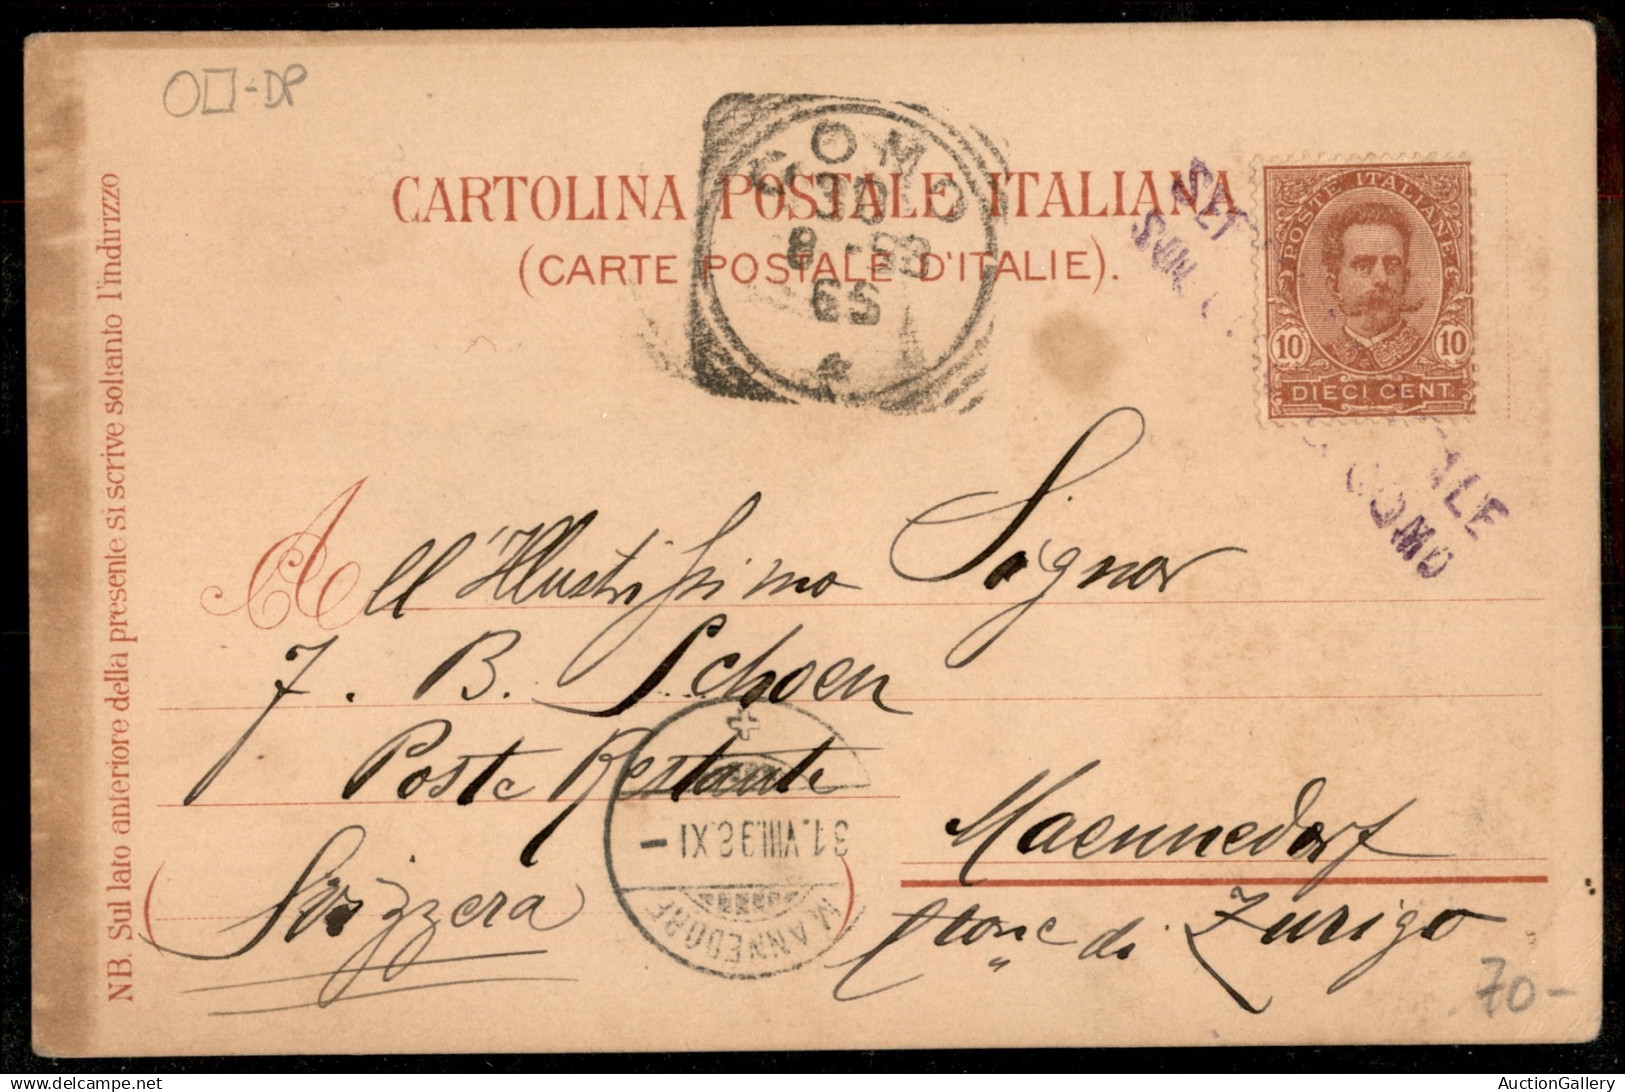 O□-DP
CARTOLINA POSTALE ITALIANA
(CARTE POSTALE D'ITALIE).
COMO
30
8-98
6S
POSTE ITALIANE
10 10
DIECI CENT.
ALE
COMO
All'Illustrissimo Signor
J. B. Schoen
Poste Restante
Maennedorf
(Svizzera)
di Zurigo
31.VIII.98.XI
MÄNNEDORF
NB. Sul lato anteriore della presente si scrive soltanto l'indirizzo
70-
AuctionGallery